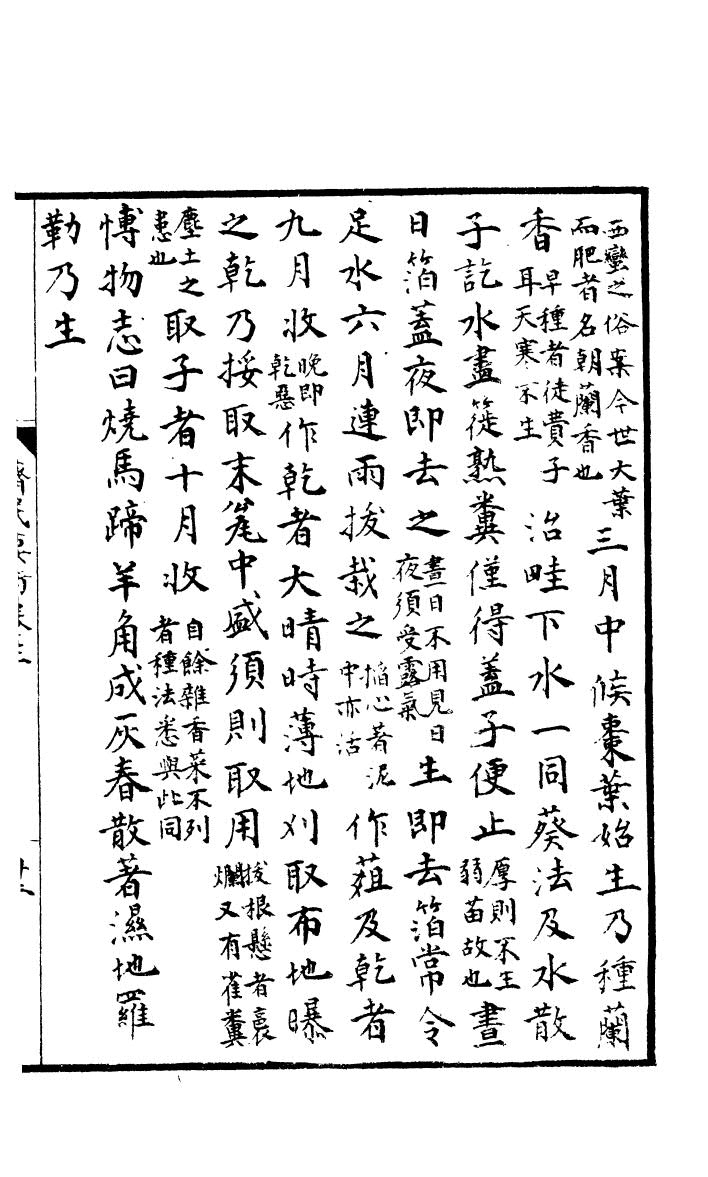 西蠻之俗案今世大葉而肥者名朝蘭香也三月中候棗葉始生乃種蘭
香早種者徒費子耳天寒不生治畦下水一同葵法及水散
子訖水盡簁熟糞僅得蓋子便止厚則不生弱苗故也晝
日箔蓋夜即去之晝日不用見日夜須受露氣生即去箔常令
足水六月連雨拔栽之掐心著泥中亦活作葅及乾者
九月收晚即乾惡作乾者大晴時薄地刈取布地曝
之乾乃挼取末瓮中盛須則取用拔根懸者裛爛又有雀糞
塵土之患也取子者十月收自餘雜香菜不列者種法悉與此同
愽物志曰燒馬蹄羊角成灰春散著濕地羅
勒乃生